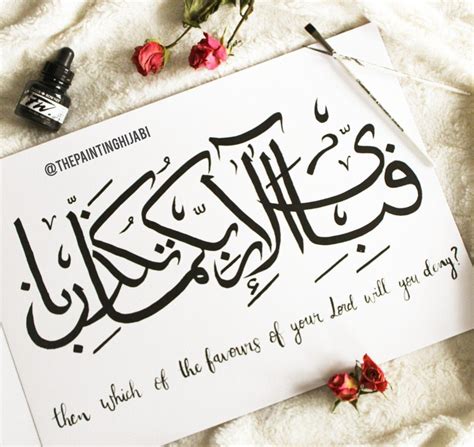 FW
@THEPAINTINGHIJABI
فبأي آلاء ربكما تكذبان
then which of the favours of your Lord will you deny?